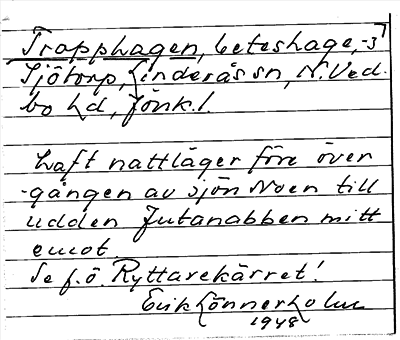 Trapphagen, beteshage, -3
Sjötorp, Linderås sn, N. Ved-
bo hd, Jönk.l.
Haft nattläger före över
-gången av sjön Noen till
udden Jutanabben mitt
emot.
Se f.ö. Ryttarekärret!
Erik Lönnerholm
1948